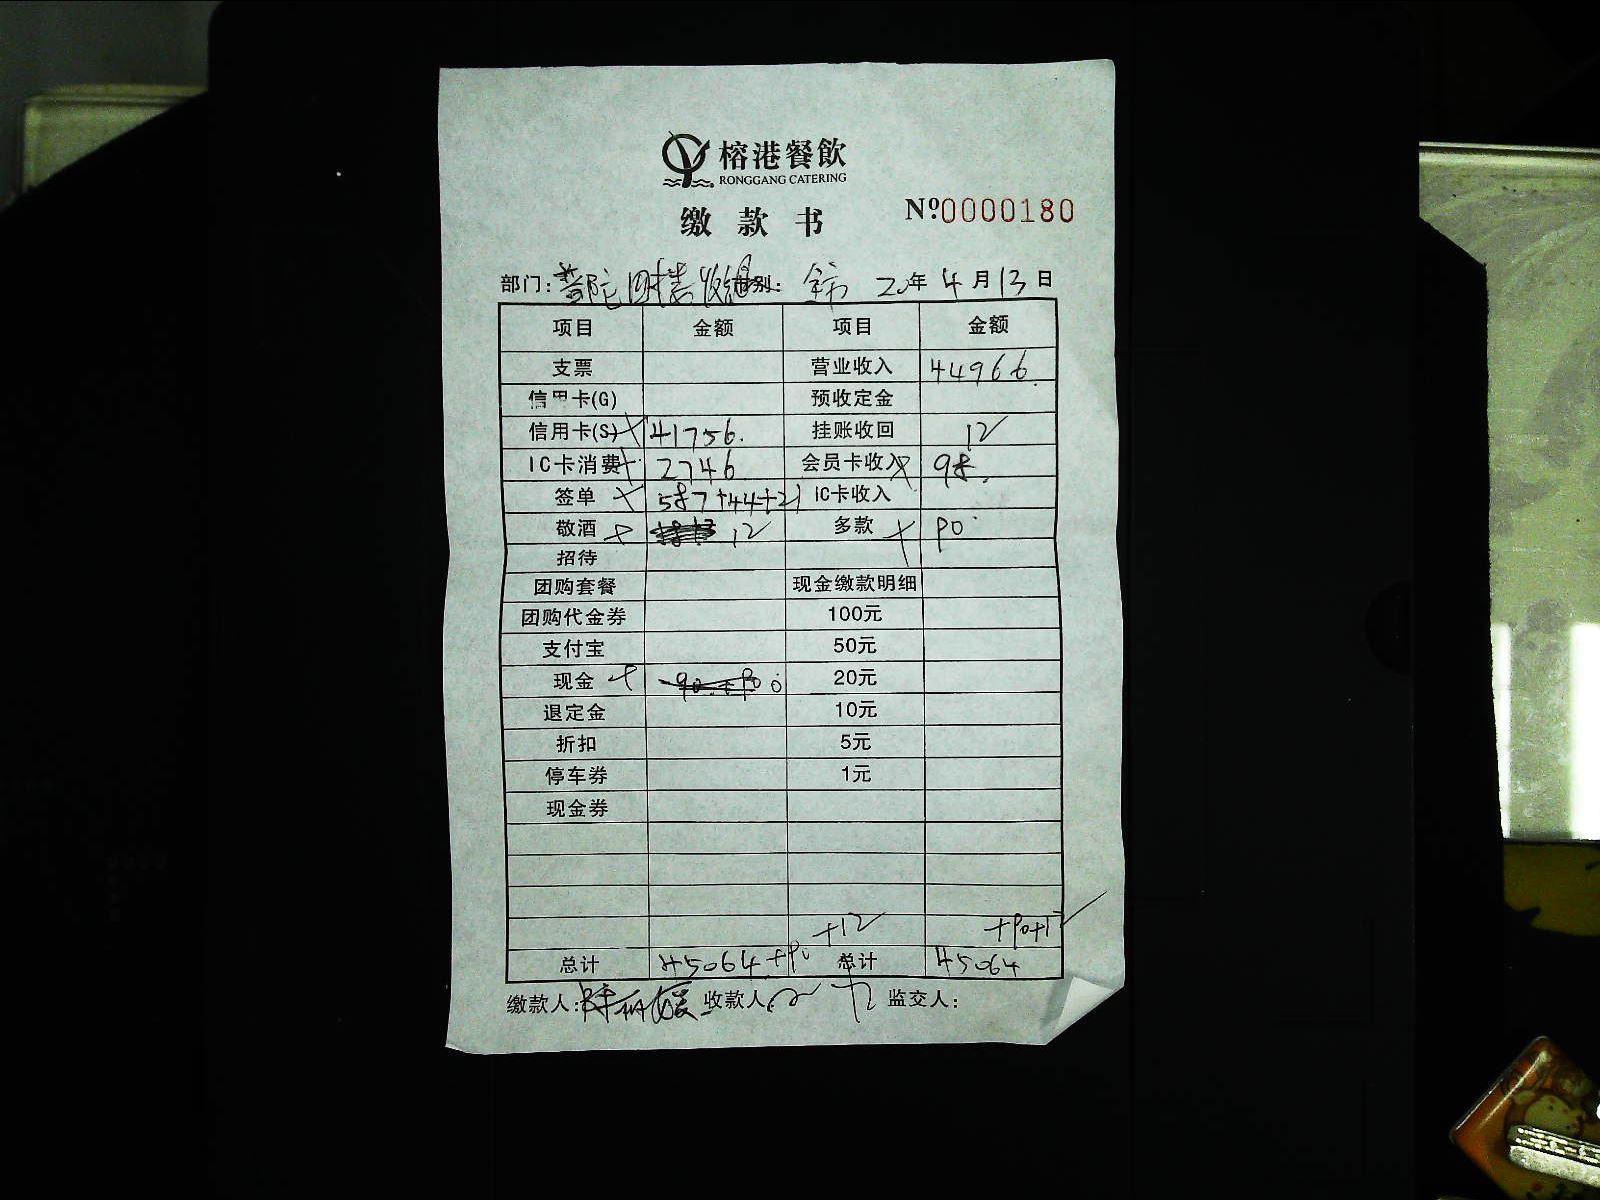 榕港餐飲
RONGGANG CATERING
缴款书 №0000180
部门：普陀 别： 20年4月13日
项目 金额 项目 金额
支票 营业收入 44966.
信用卡(G) 预收定金
信用卡(S) 41756. 挂账收回 12
IC卡消费 2746 会员卡收入 98.
签单 587+44+21 IC卡收入
敬酒 12 多款 90
招待
团购套餐 现金缴款明细
团购代金券 100元
支付宝 50元
现金 0 20元
退定金 10元
折扣 5元
停车券 1元
现金券
+12 +90+12
总计 45064+90 总计 45064
缴款人： 收款人： 监交人：